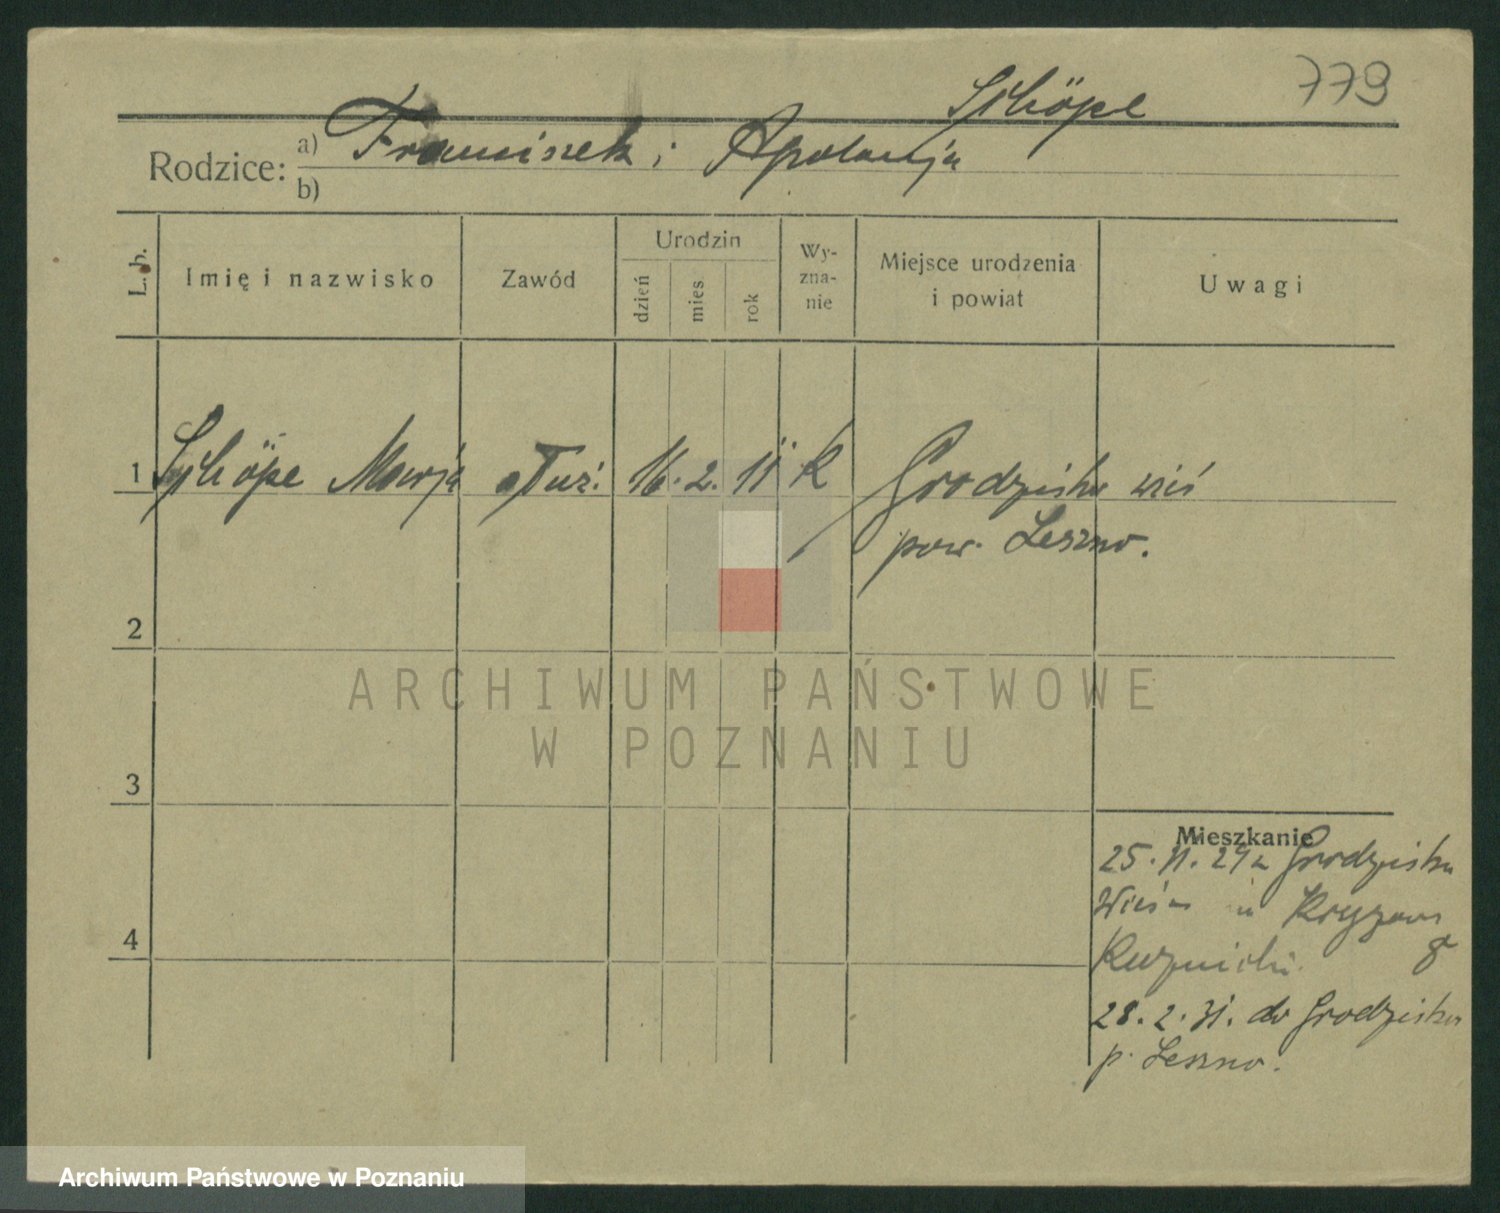 779
Schöpe
Rodzice: a) Franciszek i Apolonja
b)
L. b. Imię i nazwisko Zawód Urodzin dzień mies rok Wy-zna-nie Miejsce urodzenia i powiat Uwagi
1 Schöpe Marja służ. 16. 2. 11 k Grodzisko wieś
pow. Leszno.
2
ARCHIWUM PAŃSTWOWE
W POZNANIU
3
Mieszkanie
25. 11. 29 z Grodziska
Wieś
4
28. 2. 31. do Grodziska
p. Leszno.
Archiwum Państwowe w Poznaniu